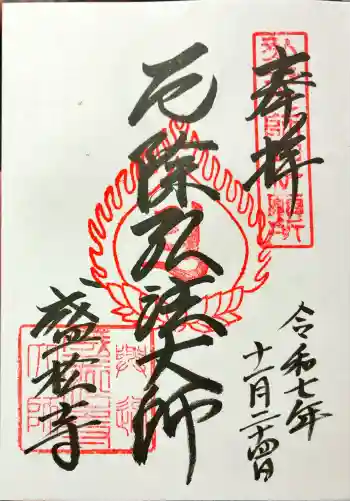 奉拝
厄除弘法大師
盛松寺
令和七年
十一月二十四日